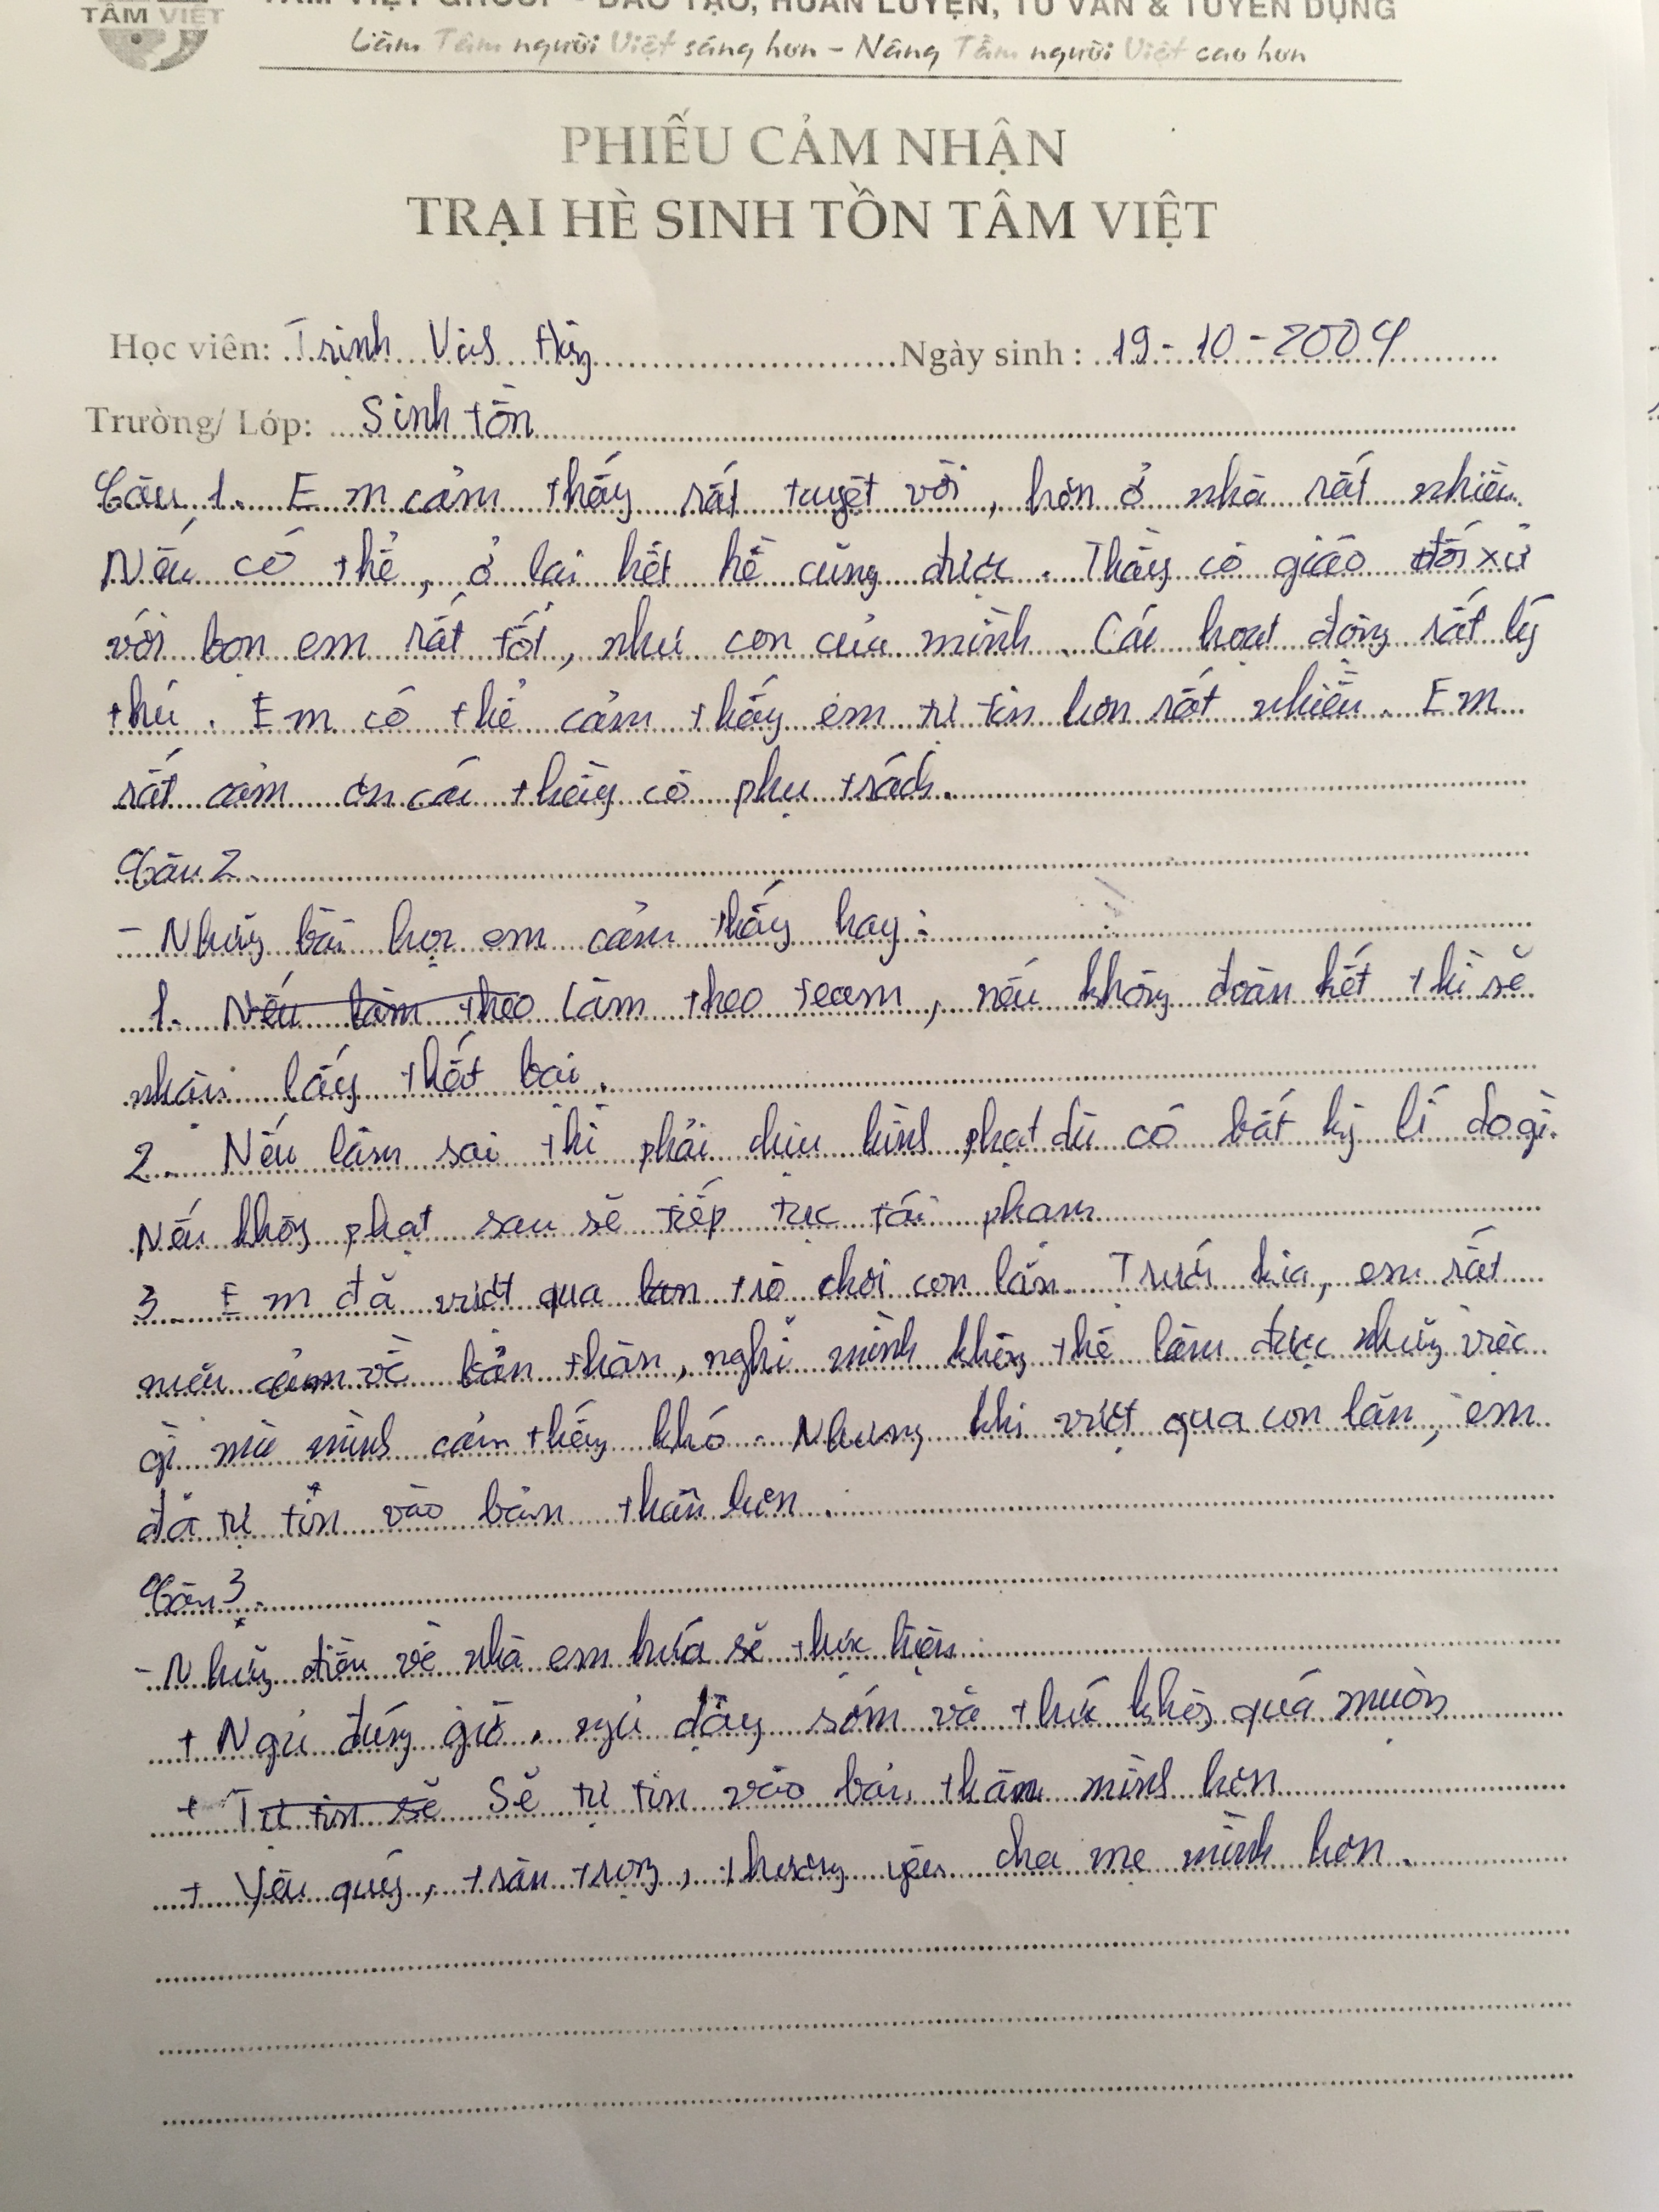 TÂM VIỆT
TÂM VIỆT GROUP - ĐÀO TẠO, HUẤN LUYỆN, TƯ VẤN & TUYỂN DỤNG
Làm Tâm người Việt sáng hơn - Nâng Tầm người Việt cao hơn
PHIẾU CẢM NHẬN
TRẠI HÈ SINH TỒN TÂM VIỆT
Học viên: Trịnh Ngày sinh: 19-10-2004
Trường/ Lớp: Sinh tồn
Câu 1. Em cảm thấy rất tuyệt vời, hơn ở nhà rất nhiều.
Nếu có thể, ở lại hết hè cũng được. Thầy cô giáo đối xử
với bọn em rất tốt, như con của mình. Các hoạt động rất lý
thú. Em có thể cảm thấy em tự tin hơn rất nhiều. Em
rất cảm ơn các thầy cô phụ trách.
Câu 2.
- Những bài học em cảm thấy hay:
1. Nếu làm theo Làm theo team, nếu không đoàn kết thì sẽ
nhận lấy thất bại.
2. Nếu làm sai thì phải chịu hình phạt dù có bất kỳ lí do gì.
Nếu không phạt sau sẽ tiếp tục tái phạm
3. Em đã vượt qua trò chơi con lăn. Trước kia, em rất
về bản thân, nghĩ mình không thể làm được những việc
gì mà mình cảm thấy khó. Nhưng khi vượt qua con lăn, em
đã tự tin vào bản thân hơn.
Câu 3.
- Những điều về nhà em hứa sẽ thực hiện:
+ Ngủ đúng giờ, ngủ dậy sớm và thức không quá muộn
+ Tự tin sẽ Sẽ tự tin vào bản thân mình hơn
+ Yêu quý, trân trọng, thương yêu cha mẹ mình hơn.